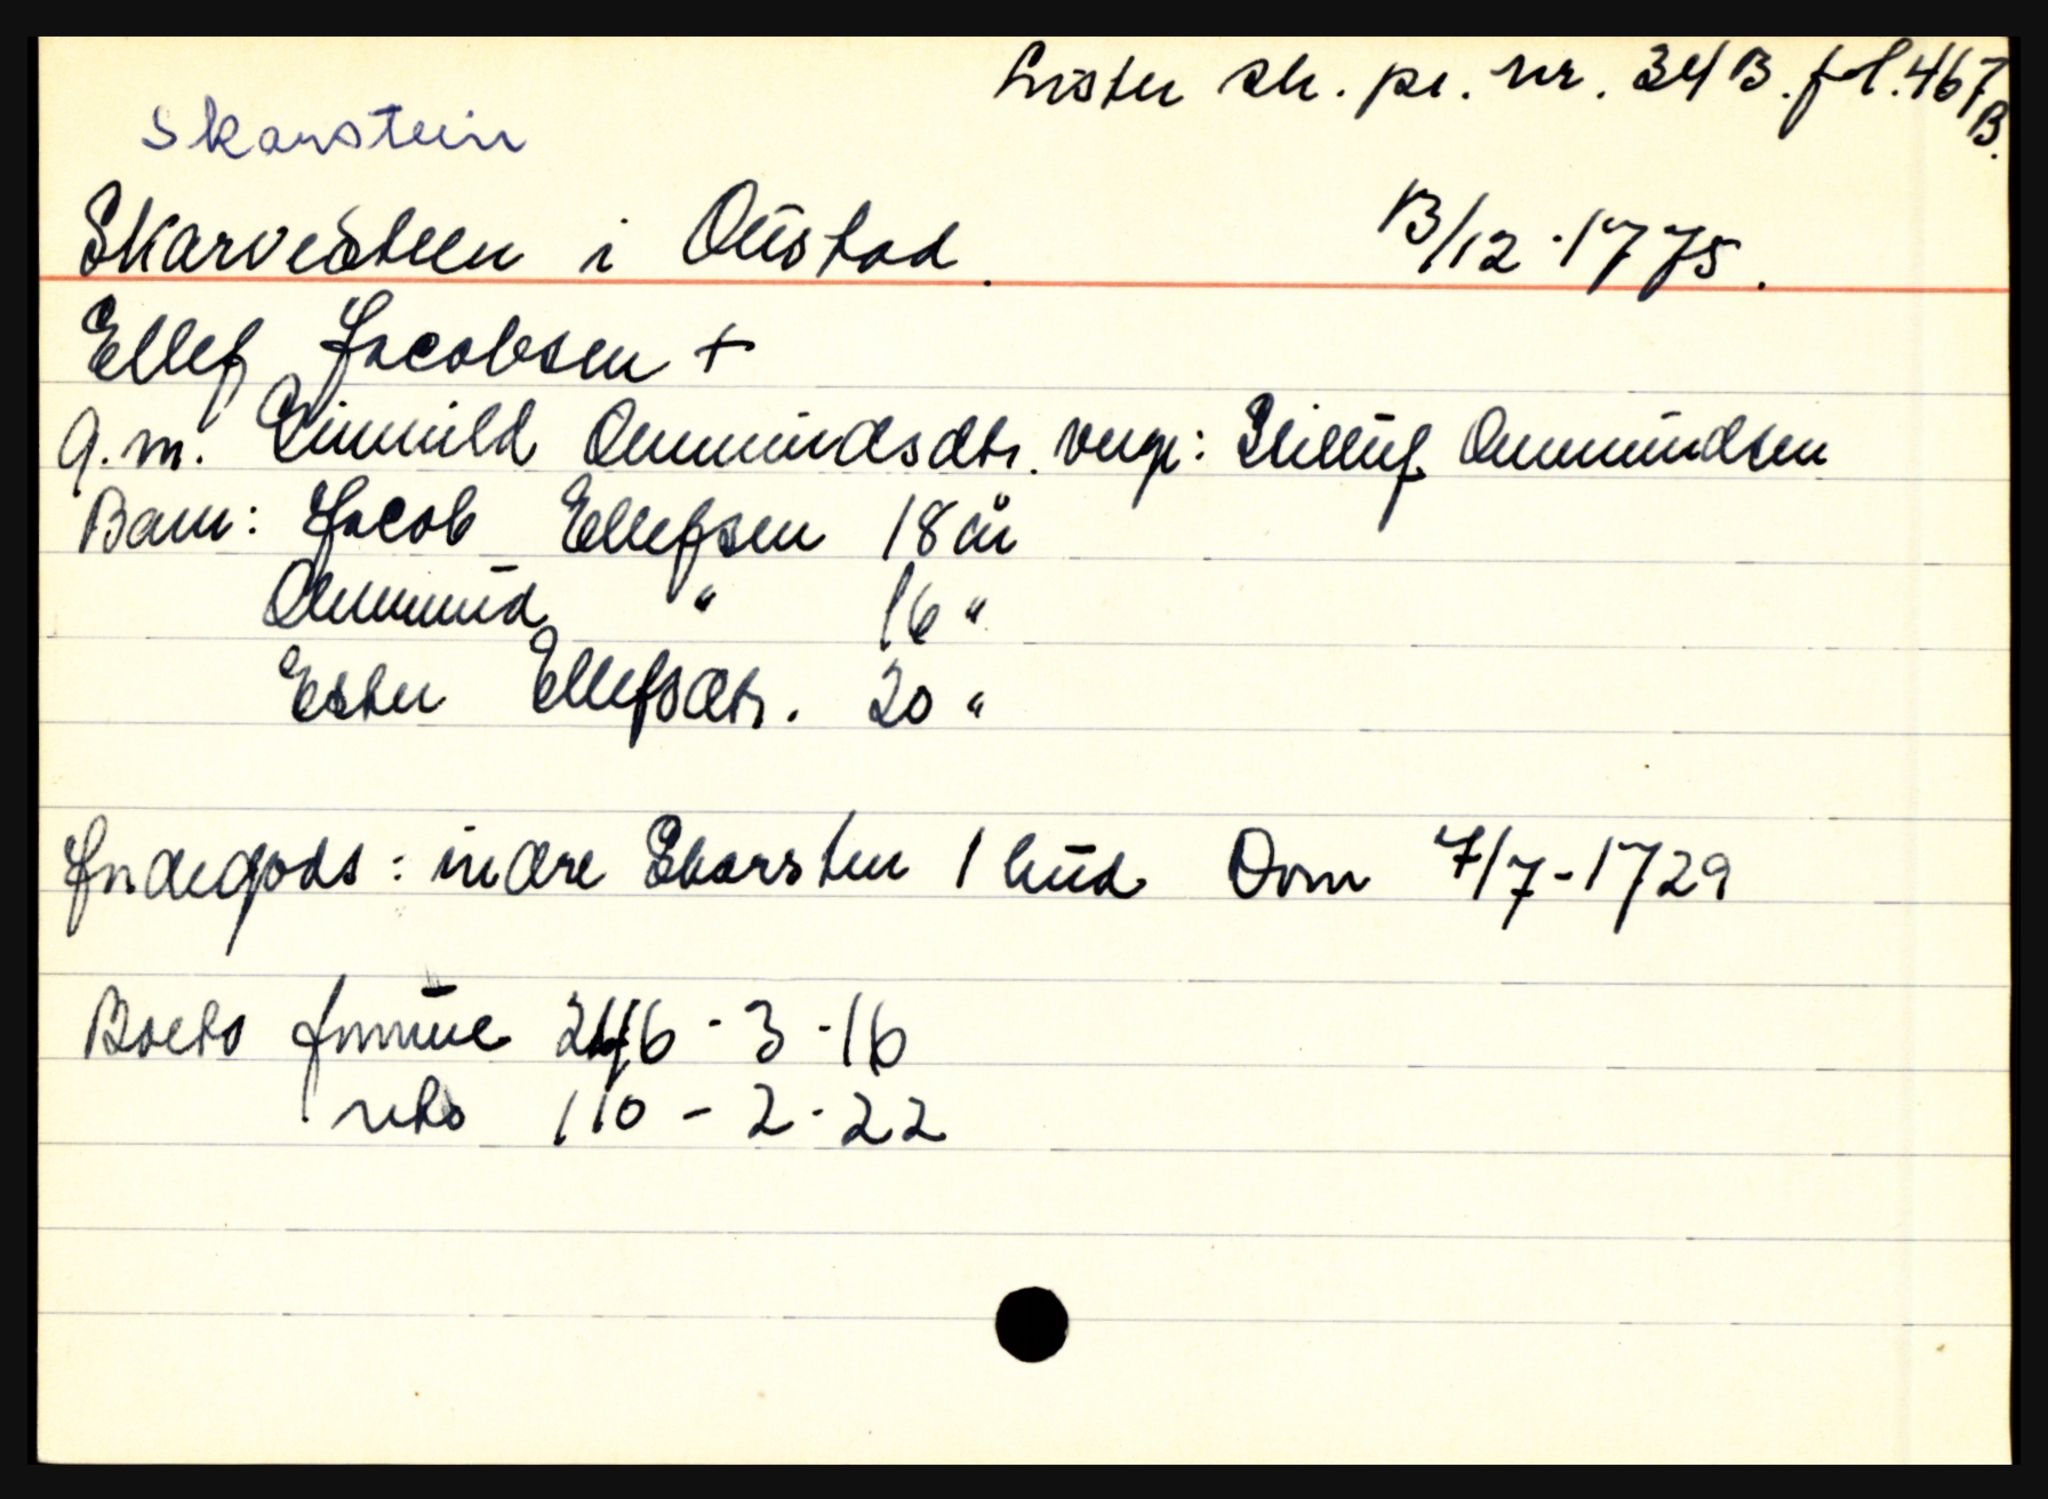 Lister sk. pr. nr. 34 B. fol. 467 B.
Skarstein
Skarvesteen i Oustad. 13/12-1775.
Ellef Jacobsen +
g.m. Gunnild Ommundsdtr. verge: Stilluf Ommundsen
Barn: Jacob Ellefsen 18 år
Ommund " 16 "
Ester Ellefsdtr. 20 "
Jordegods: indre Skarsten 1 hud Dom 7/7-1729
Boets formue 246-3-16
neto 110-2-22